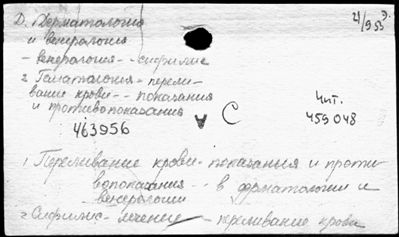 Д. 1 Дерматология
и венерология
- венерология - сифилис
2 Гематология - перели-
вание крови - показания
и противопоказания
463956
C
21/9 53 г.
Чит.
459048
1 Переливание крови - показания и проти-
вопоказания - в дерматологии и
венерологии
2 Сифилис - лечение - переливание крови